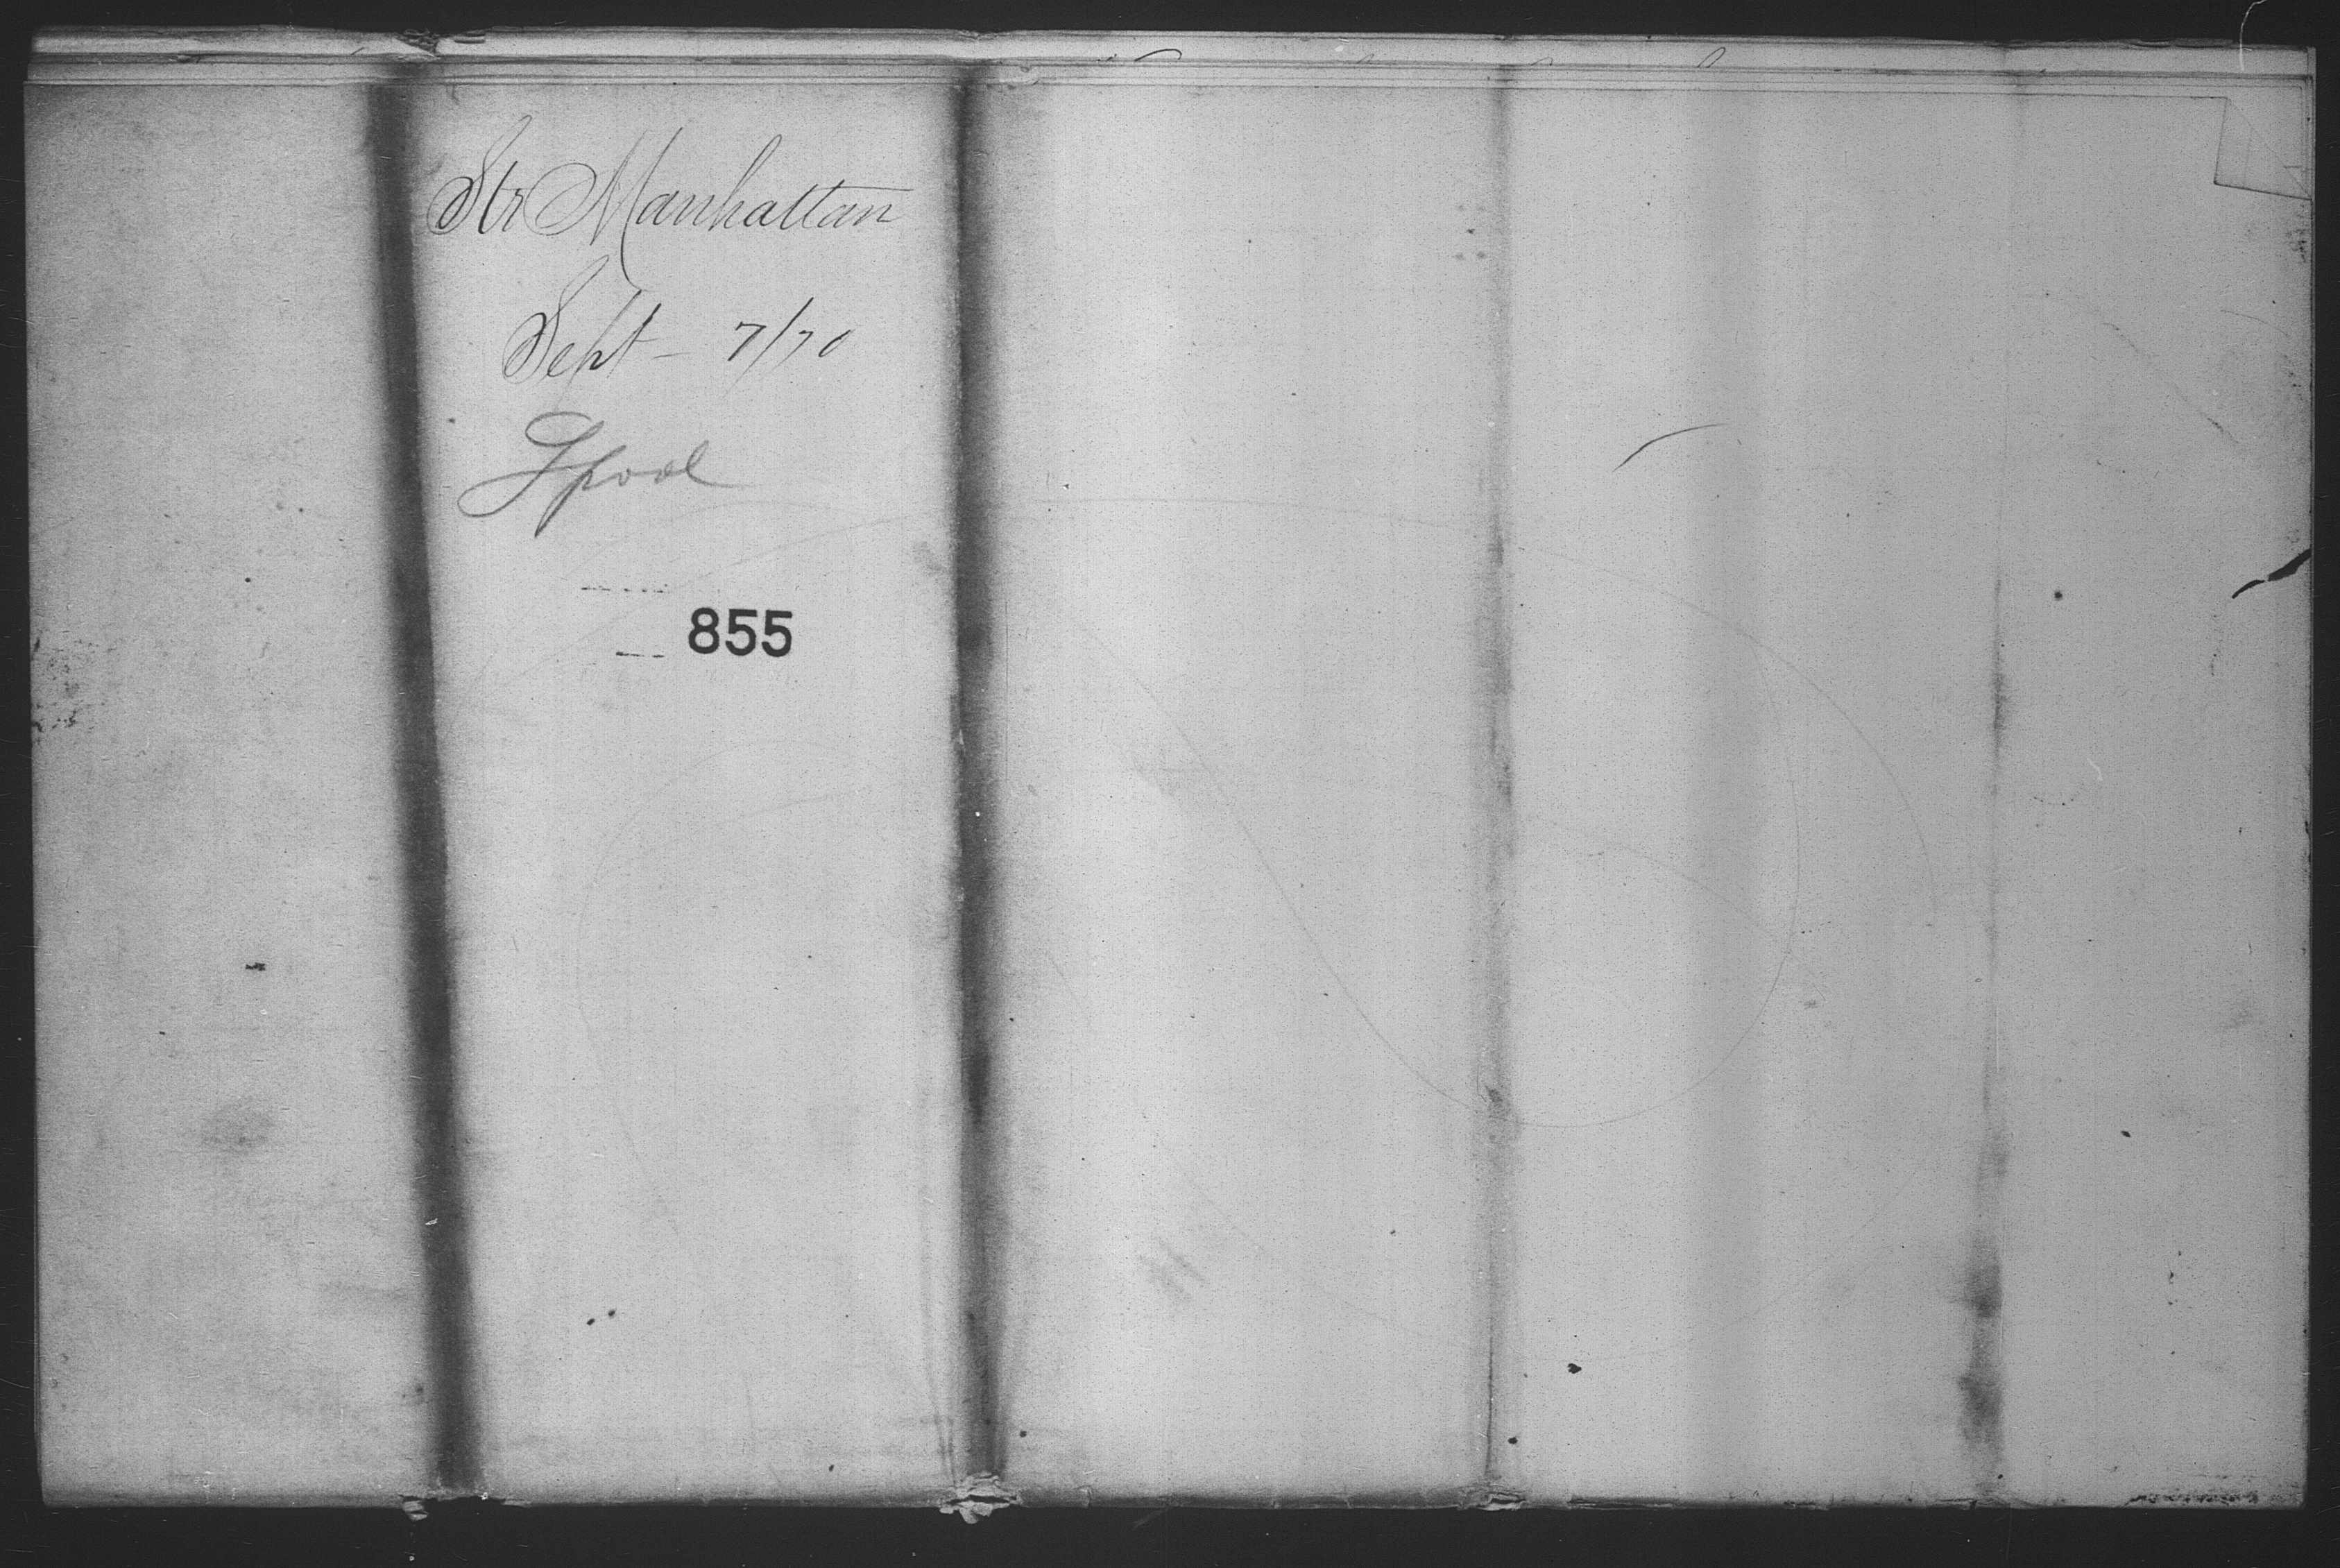 Str Manhattan
Sept - 7/70
Lpool
855